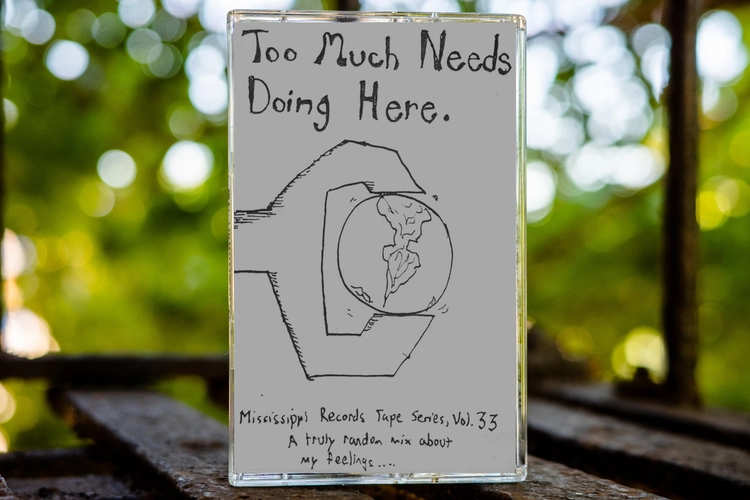 Too Much Needs
Doing Here.
Mississippi Records Tape Series, Vol. 33
A truly random mix about
my feelings....